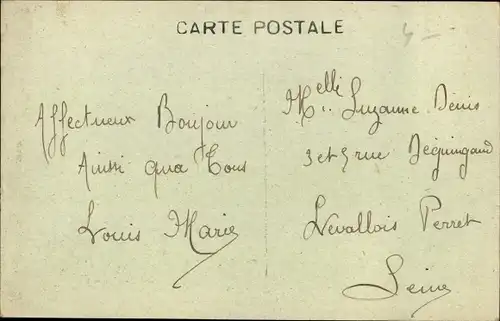 CARTE POSTALE
4 -
Affectueux Bonjour
Ainsi qua Tous
Louis Marie
Melle Suzanne Denis
3 et 5 rue Déguingand
Levallois Perret
Seine